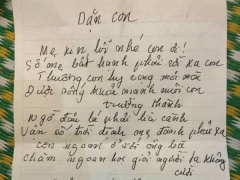 Dặn con
Mẹ xin lỗi nhé con ơi!
Số mẹ bất hạnh phải rời xa con
Thương con hy vọng mỏi mòn
Được sống khỏe mạnh nuôi con
trưởng thành
Ngờ đâu lá phải lìa cành
Vận số trời định mẹ đành phải xa
con ngoan ở với ông bà
Chăm ngoan học giỏi người ta không
cười